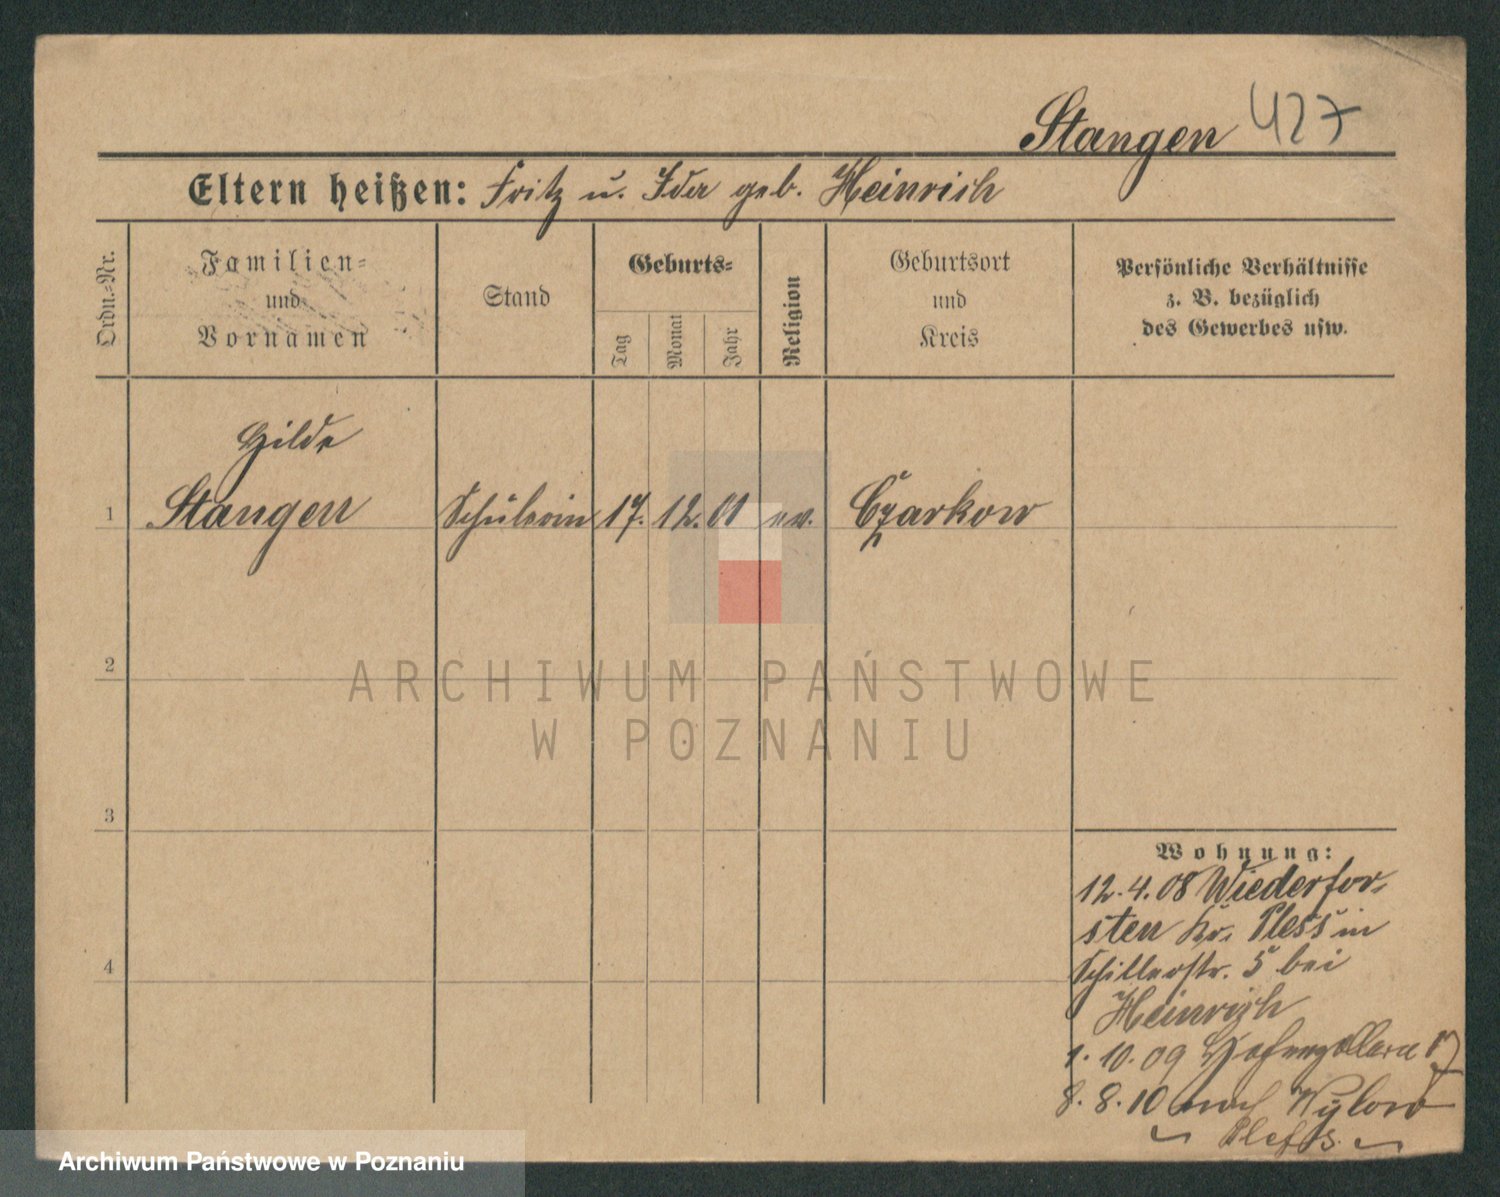 Stangen 427
Eltern heißen: Fritz u. Ida geb. Heinrich
Ordn.-Nr.
Familien-
und
Vornamen
Stand
Geburts-
Tag
Monat
Jahr
Religion
Geburtsort
und
Kreis
Persönliche Verhältnisse
z. B. bezüglich
des Gewerbes usw.
Hilde
1 Stangen Schülerin 17. 12. 01 ev. Czarkow
2
3
4
Wohnung:
12.4.08 Wiederfor-
sten Kr. Pless in
Schillerstr. 5 bei
Heinrich
1.10.09 Hohenzollern 17
8.8.10 nach
Pless
ARCHIWUM PAŃSTWOWE
W POZNANIU
Archiwum Państwowe w Poznaniu